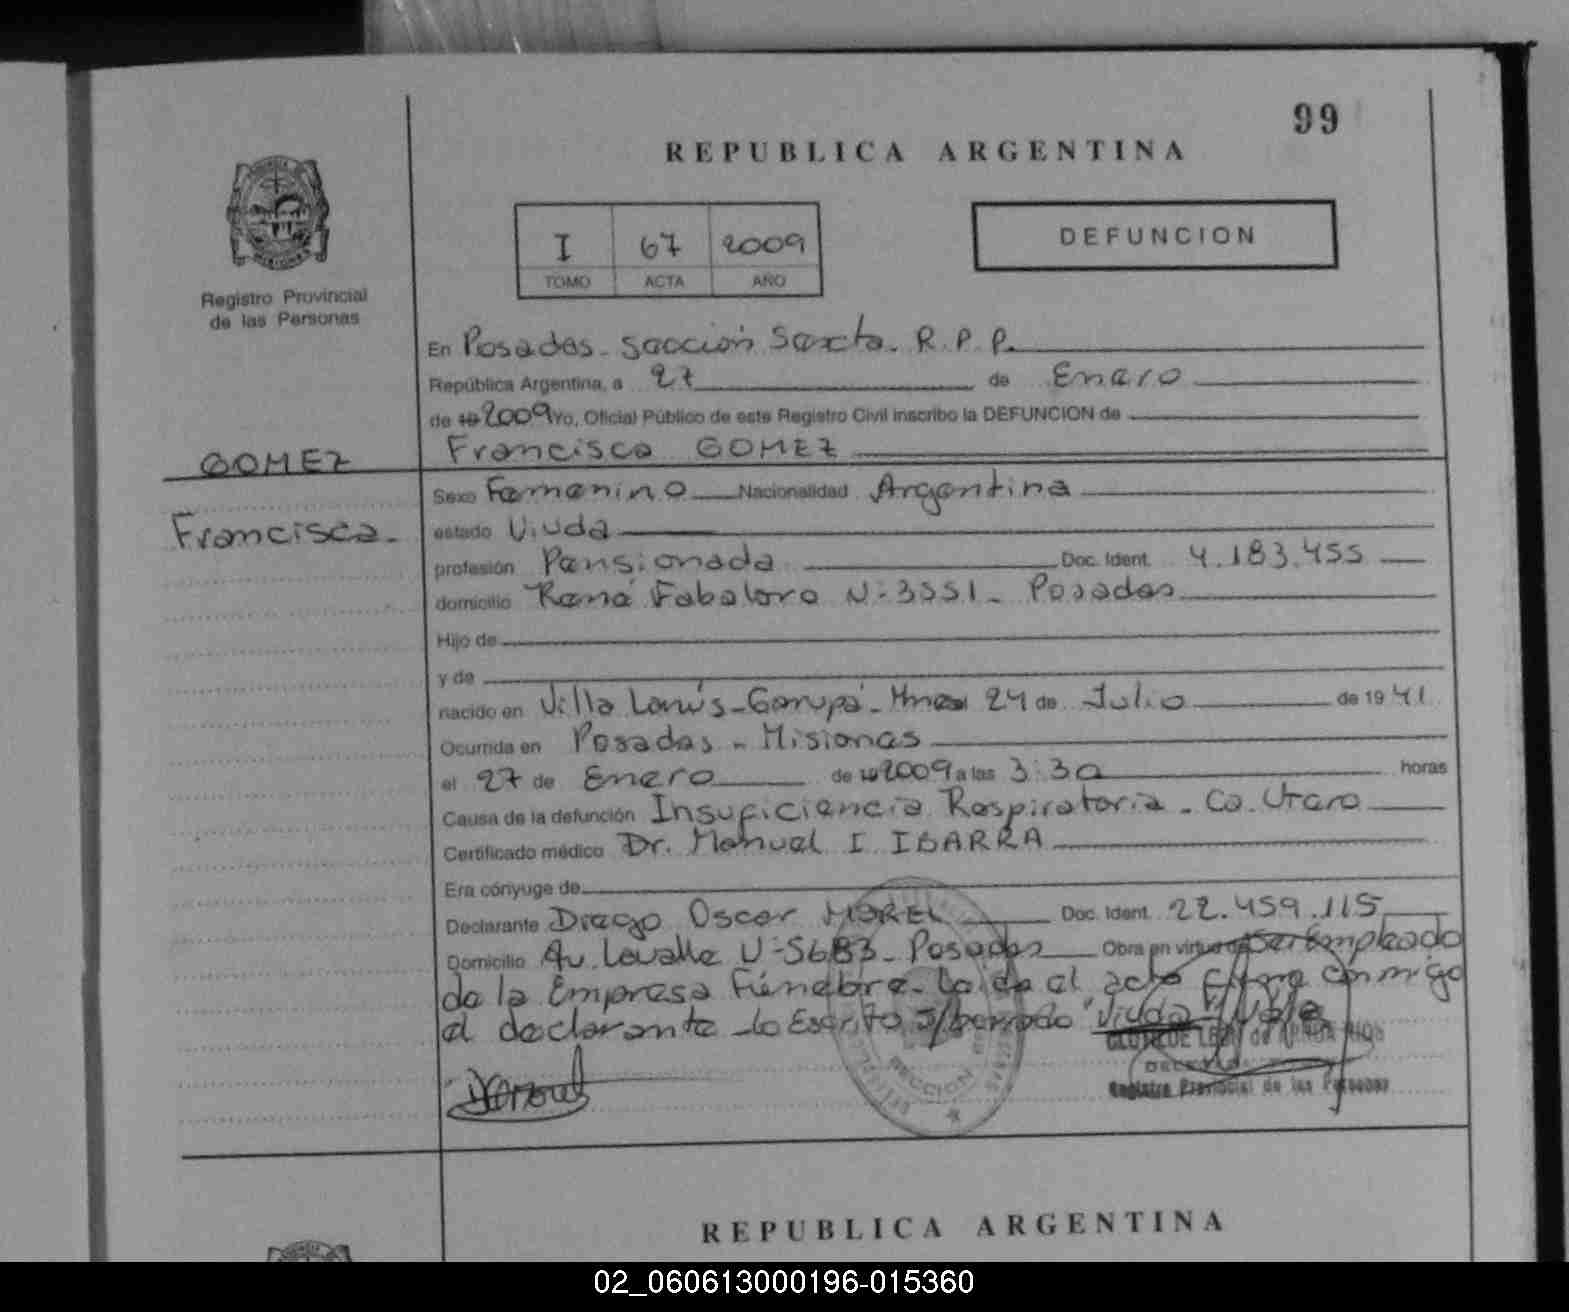 99
REPUBLICA ARGENTINA
I 67 2009
TOMO ACTA AÑO
DEFUNCION
Registro Provincial
de las Personas
En Posadas - Sección Sexta - R. P. P.
República Argentina, a 27 de Enero
de 19 2009 Yo, Oficial Público de este Registro Civil inscribo la DEFUNCION de
Francisca GOMEZ
GOMEZ
Francisca -
Sexo Femenino Nacionalidad Argentina
estado Viuda
profesión Pensionada Doc. Ident. 4.183.455
domicilio René Fabaloro N: 3551 - Posadas
Hijo de
y de
nacido en Villa Lanús - Garupá - Mnes 24 de Julio de 19 41
Ocurrida en Posadas - Misiones
el 27 de Enero de 19 2009 a las 3:30 horas
Causa de la defunción Insuficiencia Respiratoria - Ca. Utero
Certificado médico Dr. Manuel I. IBARRA
Era cónyuge de
Declarante Diego Oscar MOREL Doc. Ident. 22.459.115
Domicilio Av. Lavalle N: 5683 - Posadas Obra en virtud de Ser Empleado
de la Empresa Fúnebre - Leida el acta firma conmigo
el declarante - Lo Escrito s/borrado "Viuda" Vale
CLOTILDE de
SECCION
Registro Provincial de las Personas
REPUBLICA ARGENTINA
02_060613000196-015360